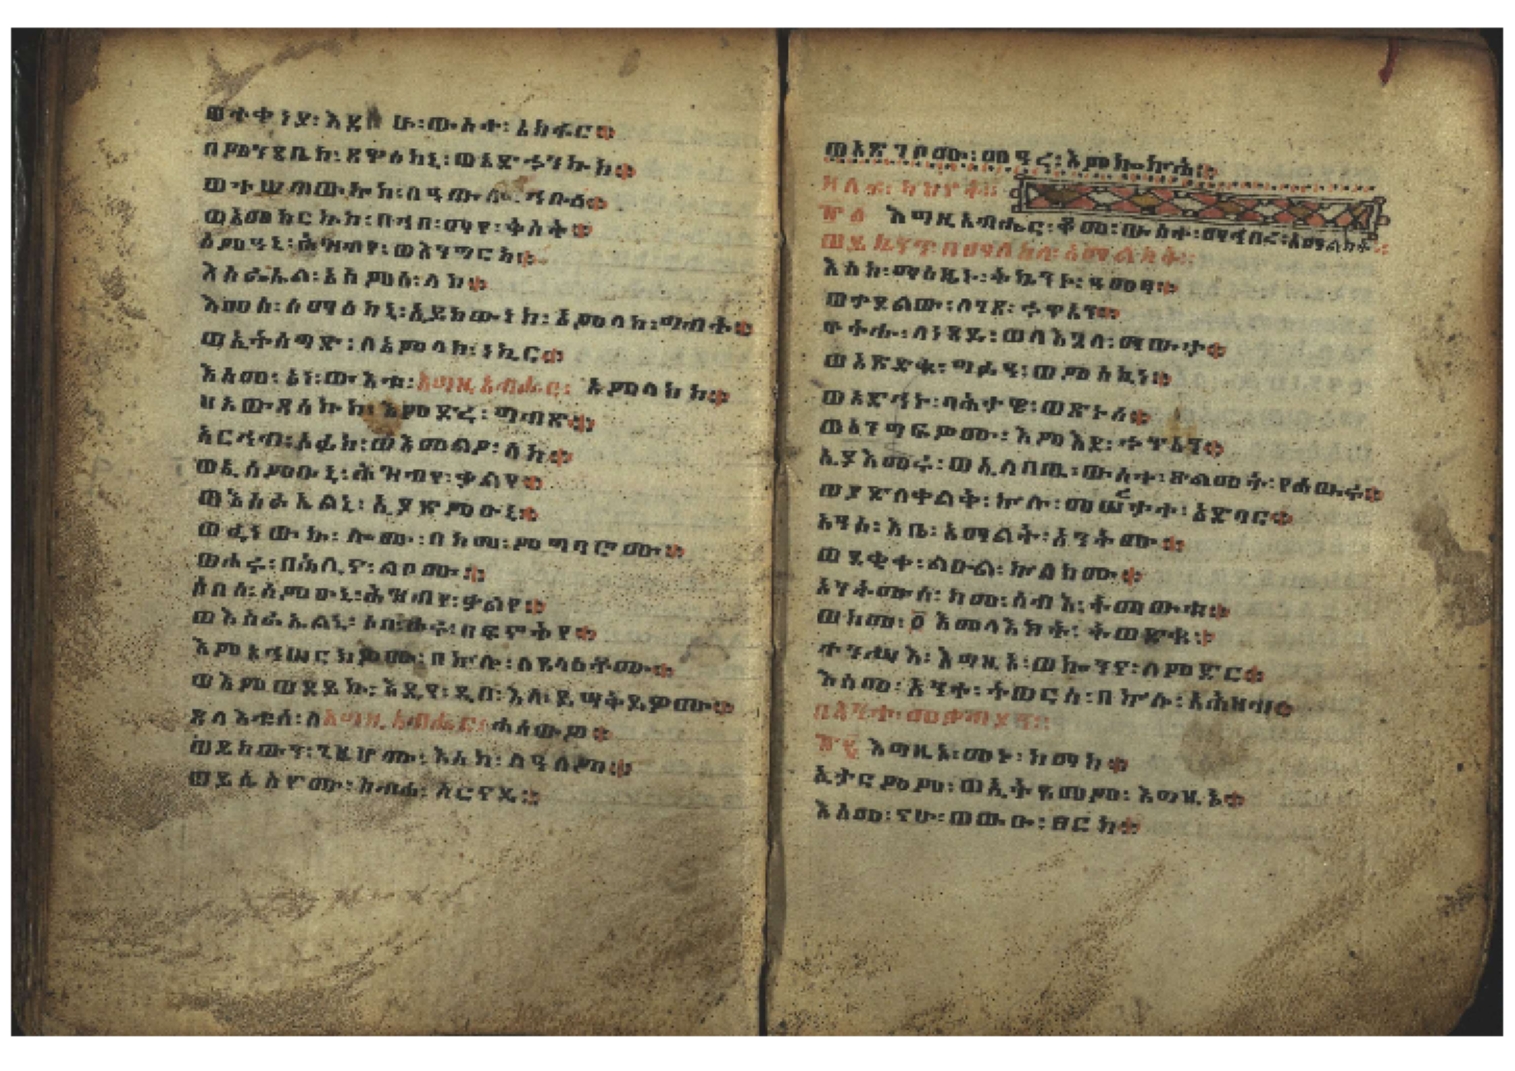 ወተቀንያ፡ እደዊሁ፡ ውስተ፡ አክፋር።
በምንዳቤከ፡ ጸዋዕከኒ፡ ወአድኀንኩከ።
ወተሠጠውኩከ፡ በዓውሎ፡ ኅቡዕ።
ወአመከርኩከ፡ በኀበ፡ ማየ፡ ቅስት።
ስምዓኒ፡ ሕዝብየ፡ ወእንግርከ።
እስራኤል፡ አስምዕ፡ ለከ።
እመሰ፡ ሰማዕከኒ፡ ኢይከውነከ፡ አምላከ፡ ግብት።
ወኢትስግድ፡ ለአምላክ፡ ነኪር።
እስመ፡ አነ፡ ውእቱ፡ እግዚአብሔር፡ አምላክከ።
ዘአውጻእኩከ፡ እምድረ፡ ግብጽ።
አርኅብ፡ አፉከ፡ ወእመልኦ፡ ለከ።
ወኢሰምዑኒ፡ ሕዝብየ፡ ቃልየ።
ወእስራኤልኒ፡ ኢያጽምዑኒ።
ወፈነውኩ፡ ሎሙ፡ በከመ፡ ምግባሮሙ።
ወሖሩ፡ በሕሊና፡ ልቦሙ።
ሶበሰ፡ ሰምዑኒ፡ ሕዝብየ፡ ቃልየ።
ወእስራኤልኒ፡ ሶበ፡ ሖሩ፡ በፍኖትየ።
እምአኅሠርክዎሙ፡ በኵሉ፡ ለጸላዕቶሙ።
ወእምወደይኩ፡ እዴየ፡ ዲበ፡ እለ፡ ይሣቅይዎሙ።
ጸላእቱሰ፡ ለእግዚአብሔር፡ ሐሰውዎ።
ወይከውን፡ ጊዜሆሙ፡ እስከ፡ ለዓለም።
ወይሴስዮሙ፡ ከብሐ፡ ስርናይ።
ወአጽገቦሙ፡ መዓረ፡ እምኰኵሕ።
፹፩ እግዚአብሔር፡ ቆመ፡ ውስተ፡ ማኅበረ፡ አማልክት።
ወይኴንን፡ በማእከለ፡ አማልክት።
እስከ፡ ማዕዜኑ፡ ትኴንኑ፡ ዓመፃ።
ወታደልው፡ ለገጸ፡ ኃጥአን።
ፍትሑ፡ ለነዳይ፡ ወለእጓለ፡ ማውታ።
ወአጽድቁ፡ ግፉዓ፡ ወምስኪነ።
ወአድኅኑ፡ ባሕታዌ፡ ወጽኑሰ።
ወአንግፍዎሙ፡ እምእደ፡ ኃጥአን።
ኢያእመሩ፡ ወኢለበዉ፡ ውስተ፡ ጽልመት፡ የሐውሩ።
ወያድለቀልቅ፡ ኵሉ፡ መሠረታተ፡ ለምድር።
አንሰ፡ እቤ፡ አማልክት፡ አንትሙ።
ወደቂቀ፡ ልዑል፡ ኵልክሙ።
አንትሙሰ፡ ከመ፡ ሰብእ፡ ትመውቱ።
ወከመ፡ ፩ እመላእክት፡ ትወድቁ።
ተንሥእ፡ እግዚኦ፡ ወኰንና፡ ለምድር።
እስመ፡ አንተ፡ ትወርስ፡ በኵሉ፡ አሕዛብ።
በእንተ፡ መቃብያን።
፹፪ እግዚኦ፡ መኑ፡ ከማከ።
ኢታርምም፡ ወኢትጸመም፡ እግዚኦ።
እስመ፡ ናሁ፡ ወውዑ፡ ፀርከ።